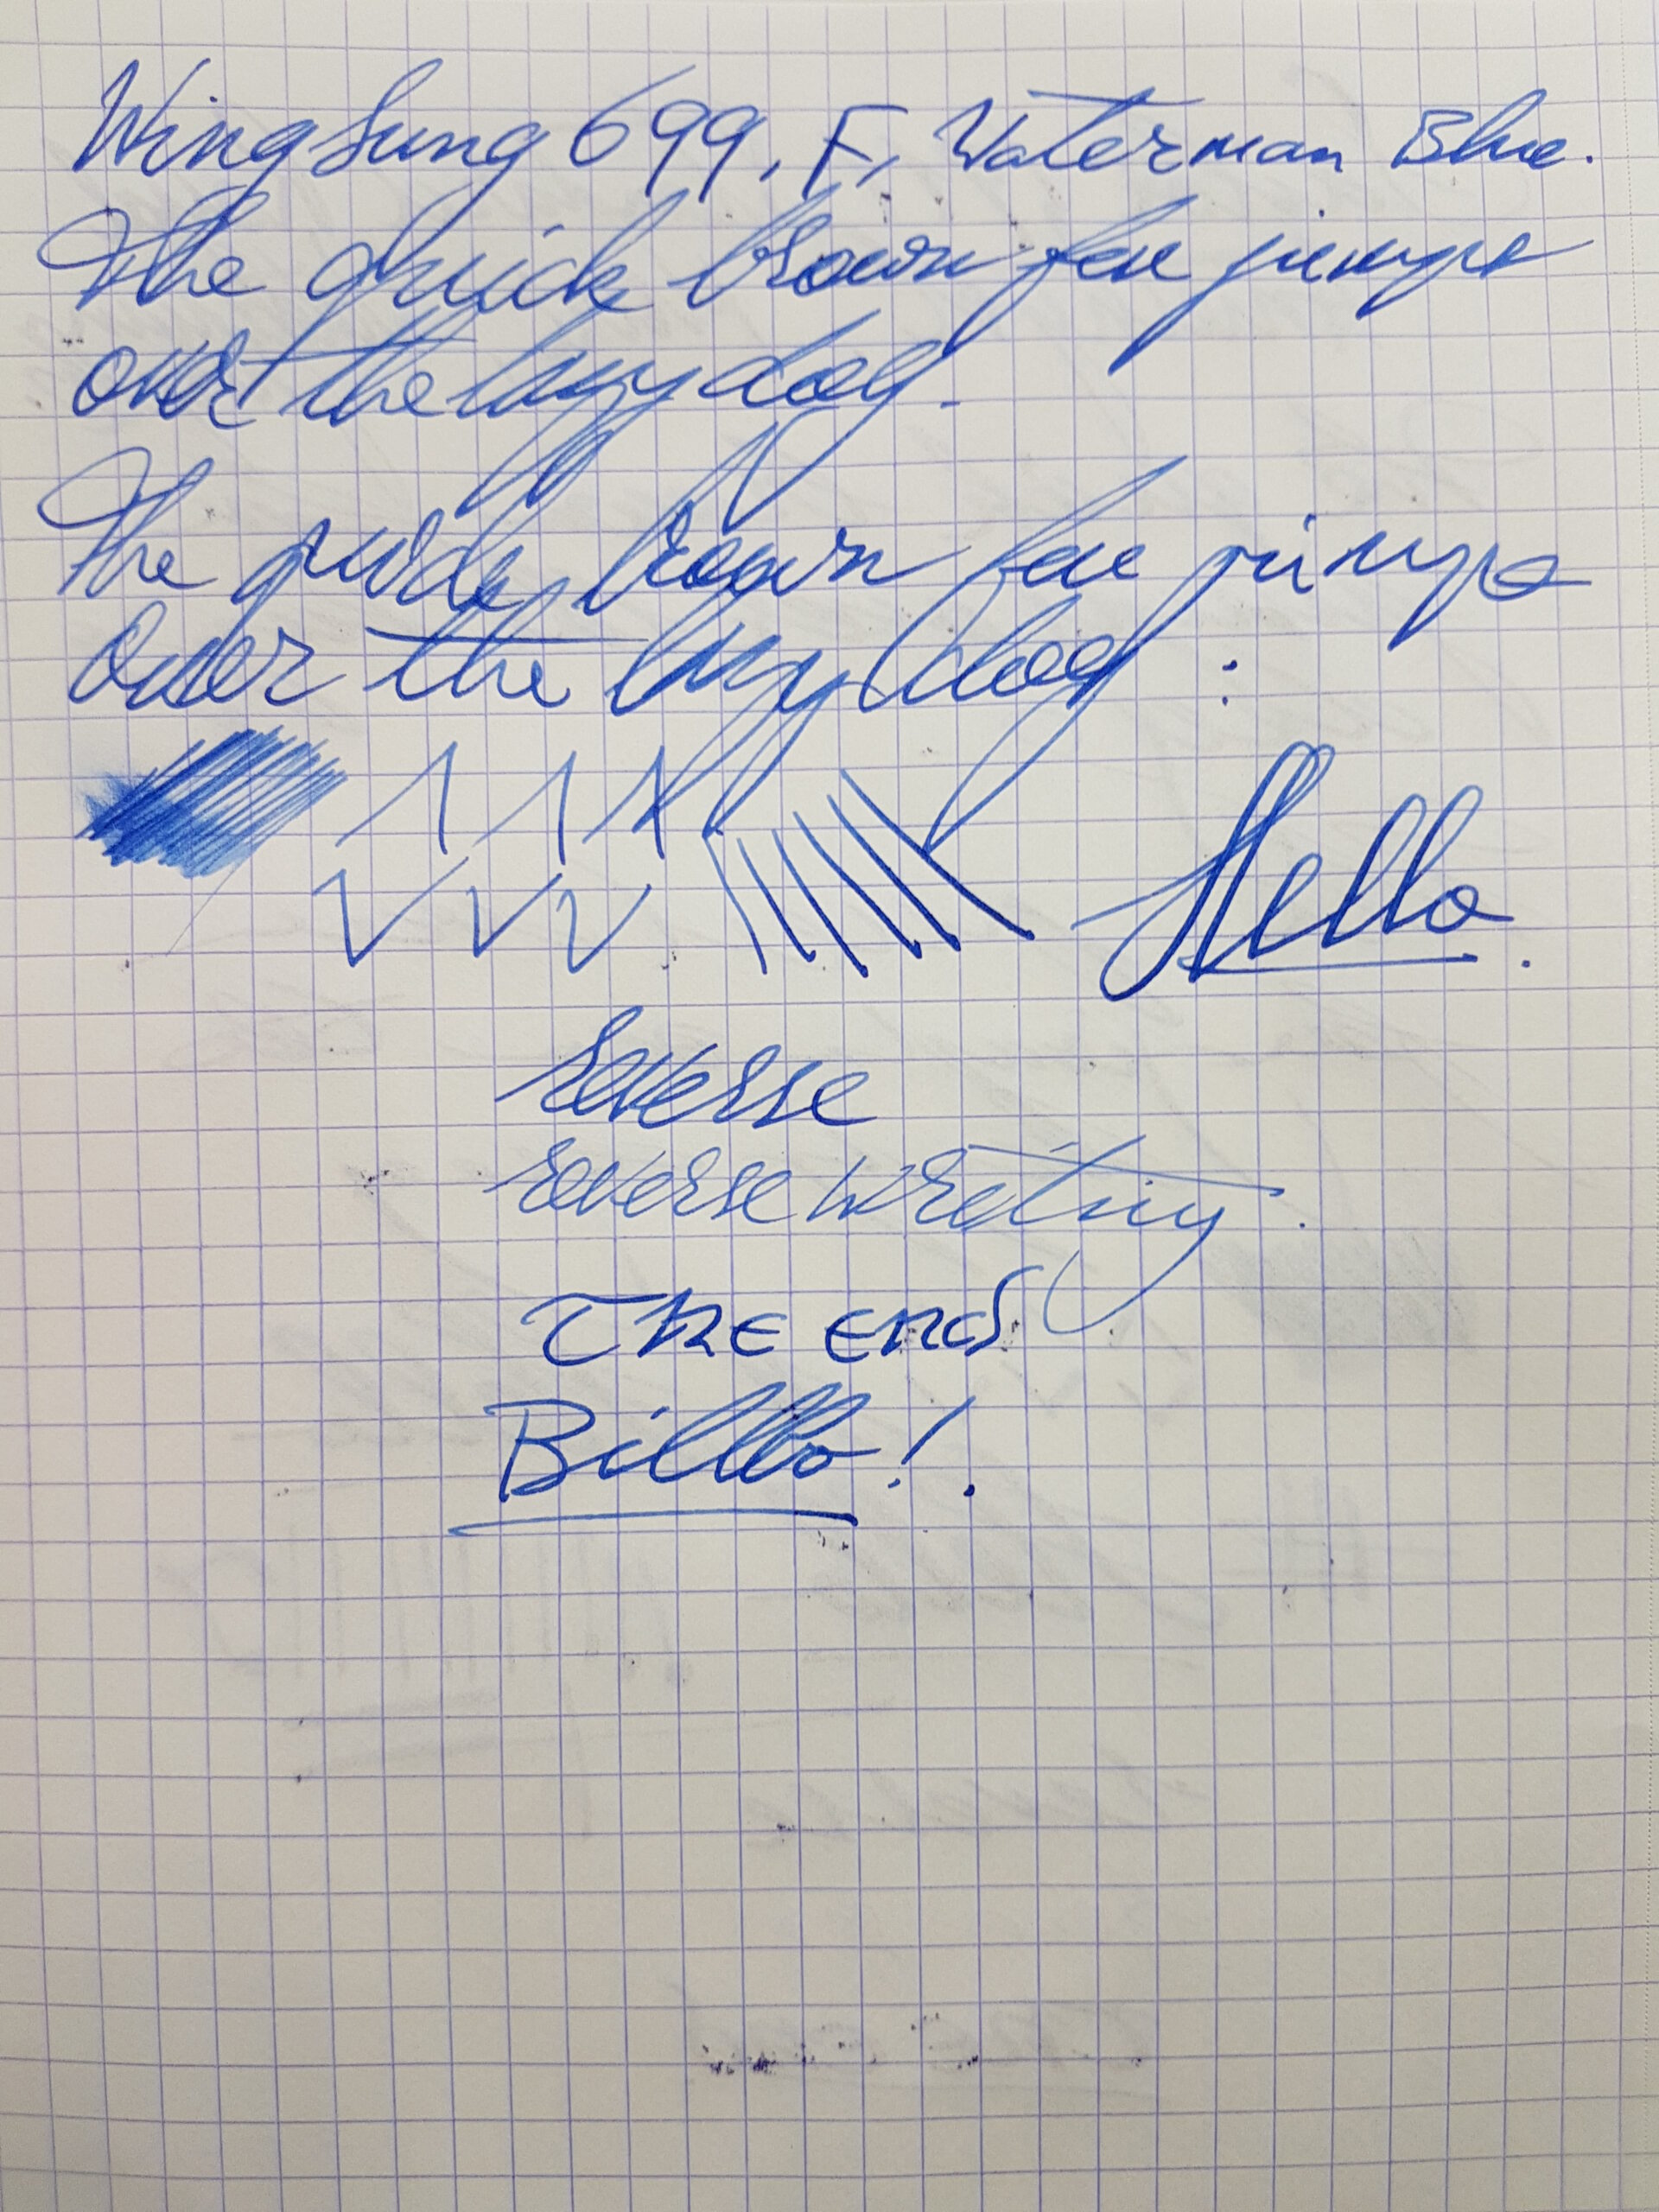 Wing Sung 699, F, Waterman Blue.
The quick brown fox jumps
over the lazy dog.
The quick brown fox jumps
over the lazy dog.
Hello.
reverse
reverse writing.
The end
Billbo!.